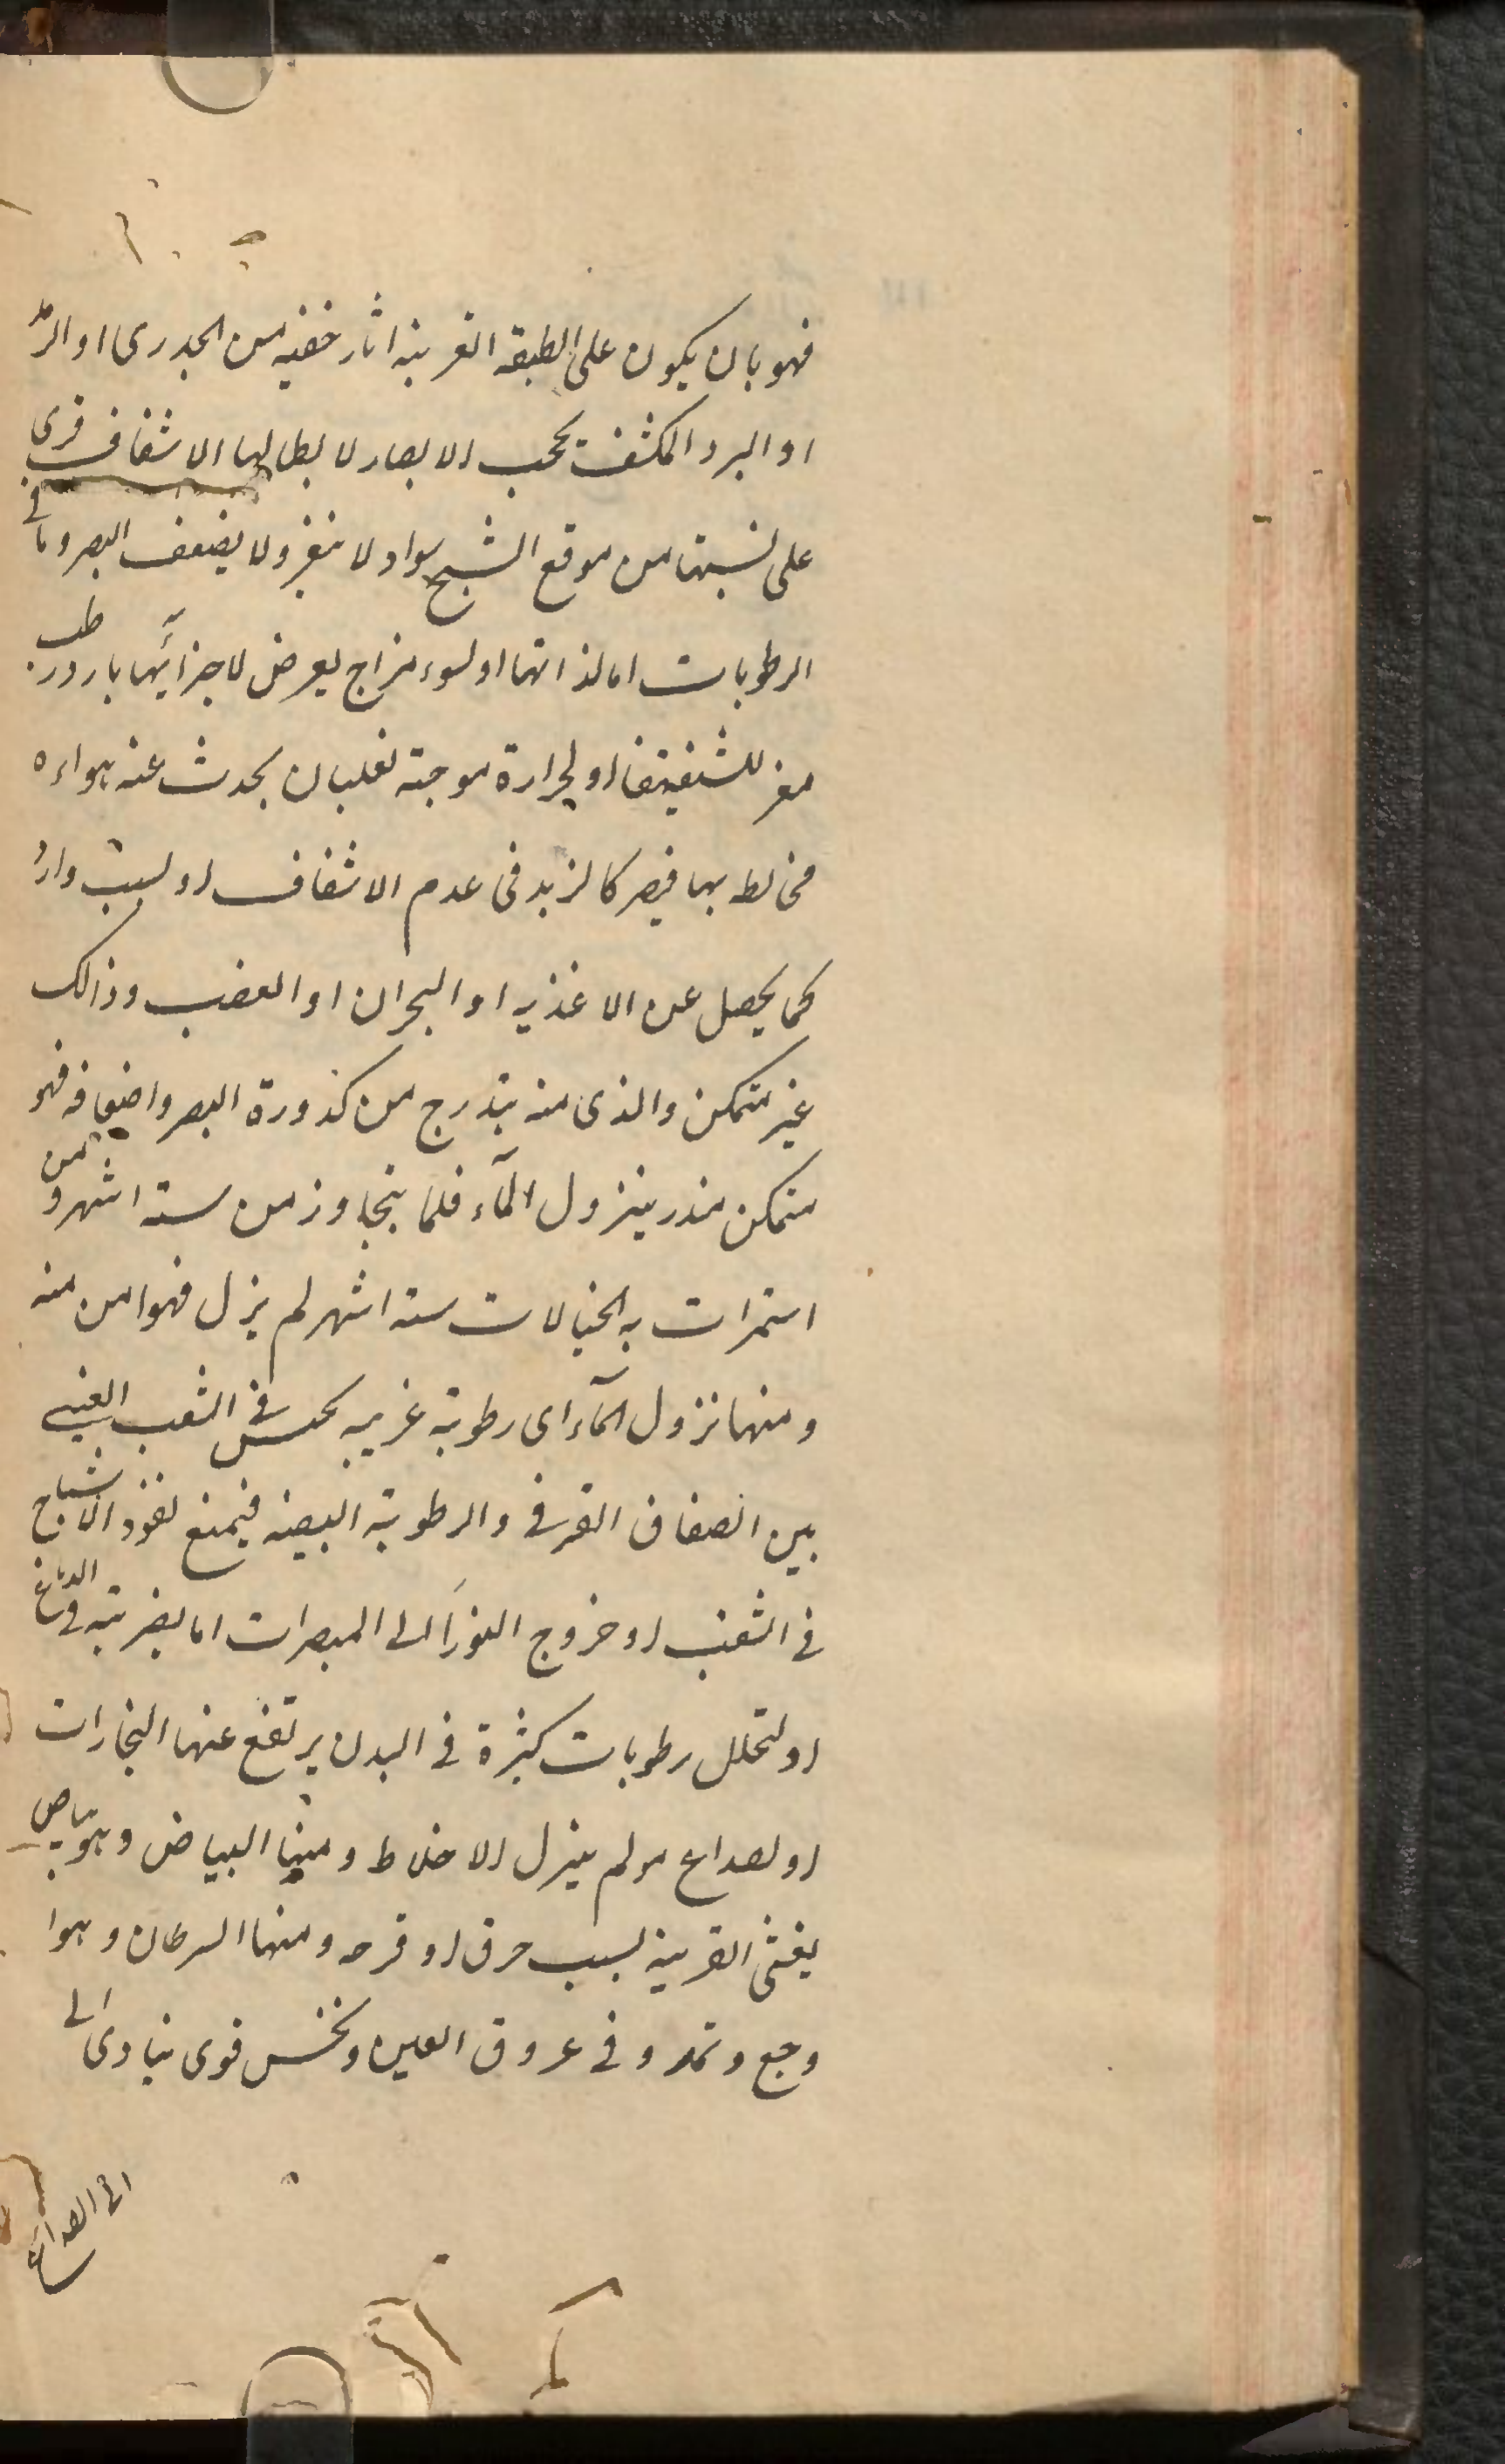 فهو بان يكون على الطبقة القرنية اثار خفيه من الجدرى او الرمد
او البرد المكثف تحجب الابصار لا بطالها الاشفاف فرى
على نسبتها من موقع الشبح سواد لا يتغير ولا يضعف البصر وما فى
الرطوبات اما لذاتها او لسوء مزاج يعرض لاجزائها بارد رطب
مغر للشفيتها او لحرارة موجبة لغليان يحدث عنه هواءه
مخالط بها فيصر كالزبد فى عدم الاشفاف او لسبب وارد
كما يحصل عن الاغذيه او البحران او الغضب وذالك
غير متمكن والذى منه بتدرج من كدورة البصر واضعافه فهو
متمكن منذر بنزول المآء فلما يتجاوز من ستة اشهر و من
استمرات به الخيالات ستة اشهر لم يزل فهو امن منه
ومنها نزول المآء اى رطوبة غريبه تحتبس فى الثقب العنبى
بين الصفاق القرنى والرطوبة البيضيه فيمنع نفوذ الاشباح
فى الثقب او خروج النور الى المبصرات اما لضربته فى الدماغ
او لتحلل رطوبات كثيرة فى البدن يرتفع عنها البخارات
او لصداع مولم ينزل الاخلاط ومنها البياض وهو بياض
يغشى القرنية بسبب حرق او قرحه ومنها السرطان وهو ا
وجع وتمدد فى عروق العين ونخس قوى يتادى الى
الى الصداع